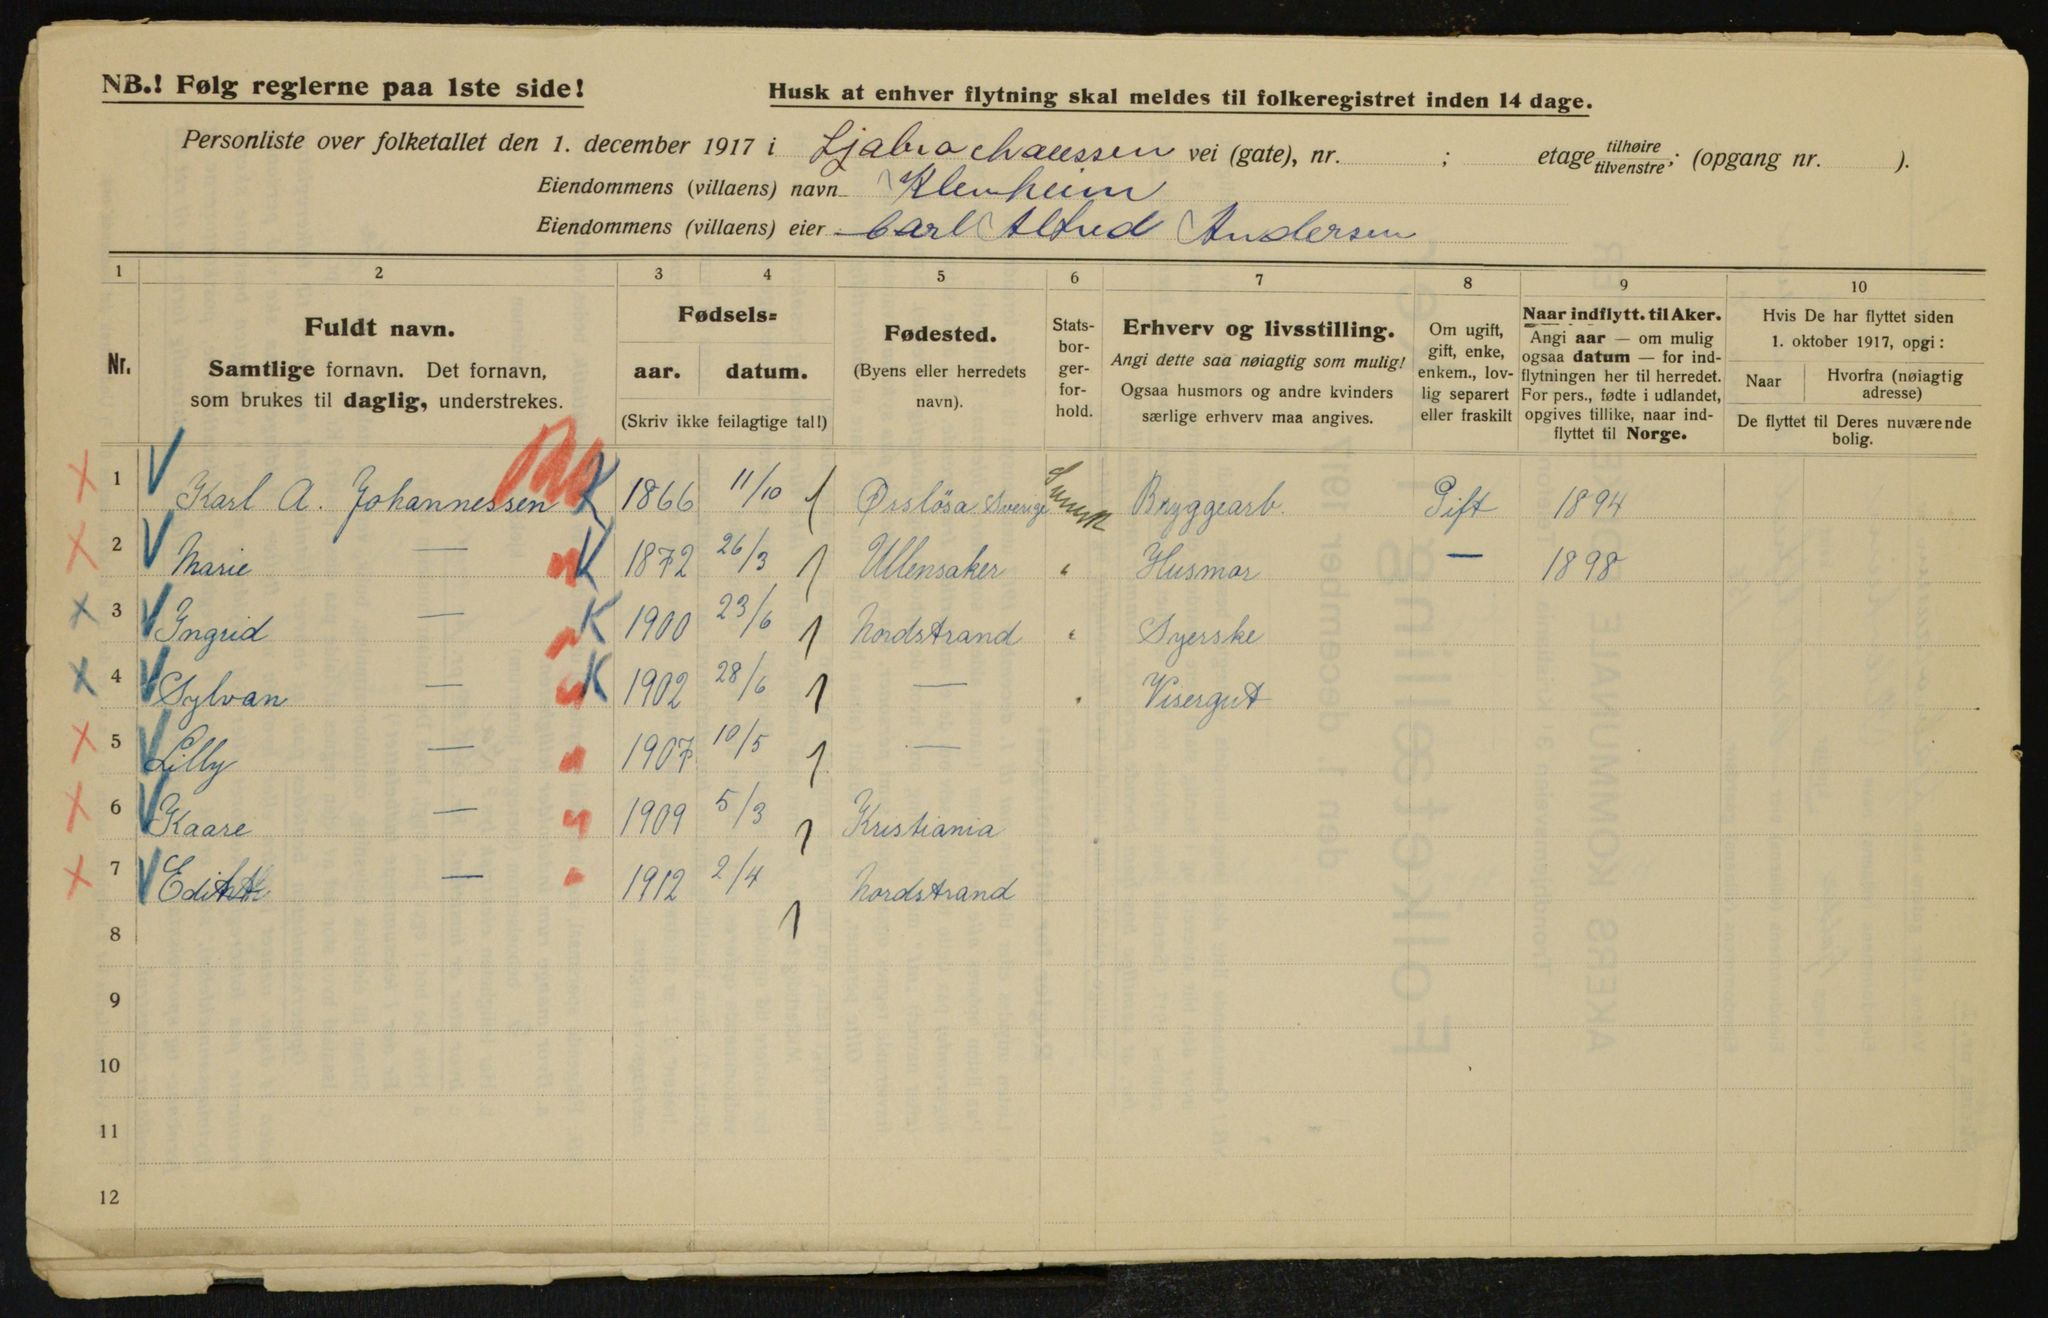 NB.! Følg reglerne paa 1ste side!
Husk at enhver flytning skal meldes til folkeregistret inden 14 dage.
Personliste over folketallet den 1. december 1917 i Ljabrochaussen vei (gate), nr. ; etage tilhøire tilvenstre; (opgang nr. ).
Eiendommens (villaens) navn Klemheim
Eiendommens (villaens) eier Carl Alfred Andersen
1 2 3 4 5 6 7 8 9 10
Nr.
Fuldt navn.
Samtlige fornavn. Det fornavn,
som brukes til daglig, understrekes.
Fødsels=
aar. datum.
(Skriv ikke feilagtige tal!)
Fødested.
(Byens eller herredets
navn).
Stats-
bor-
ger-
for-
hold.
Erhverv og livsstilling.
Angi dette saa nøiagtig som mulig!
Ogsaa husmors og andre kvinders
særlige erhverv maa angives.
Om ugift,
gift, enke,
enkem., lov-
lig separert
eller fraskilt
Naar indflytt. til Aker.
Angi aar — om mulig
ogsaa datum — for ind-
flytningen her til herredet.
For pers., fødte i utlandet,
opgives tillike, naar ind-
flyttet til Norge.
Hvis De har flyttet siden
1. oktober 1917, opgi:
Naar
Hvorfra (nøiagtig
adresse)
De flyttet til Deres nuværende
bolig.
1 Karl A. Johannessen K 1866 11/10 Örslösa Sverige Svensk Bryggearb. Gift 1894
2 Marie — K 1872 26/3 Ullensaker " Husmor — 1898
3 Ingrid — K 1900 23/6 Nordstrand " Syerske
4 Sylvan — K 1902 28/6 — " Visergut
5 Lilly — 1907 10/5 —
6 Kaare — 1909 5/3 Kristiania
7 Edith — 1912 2/4 Nordstrand
8
9
10
11
12